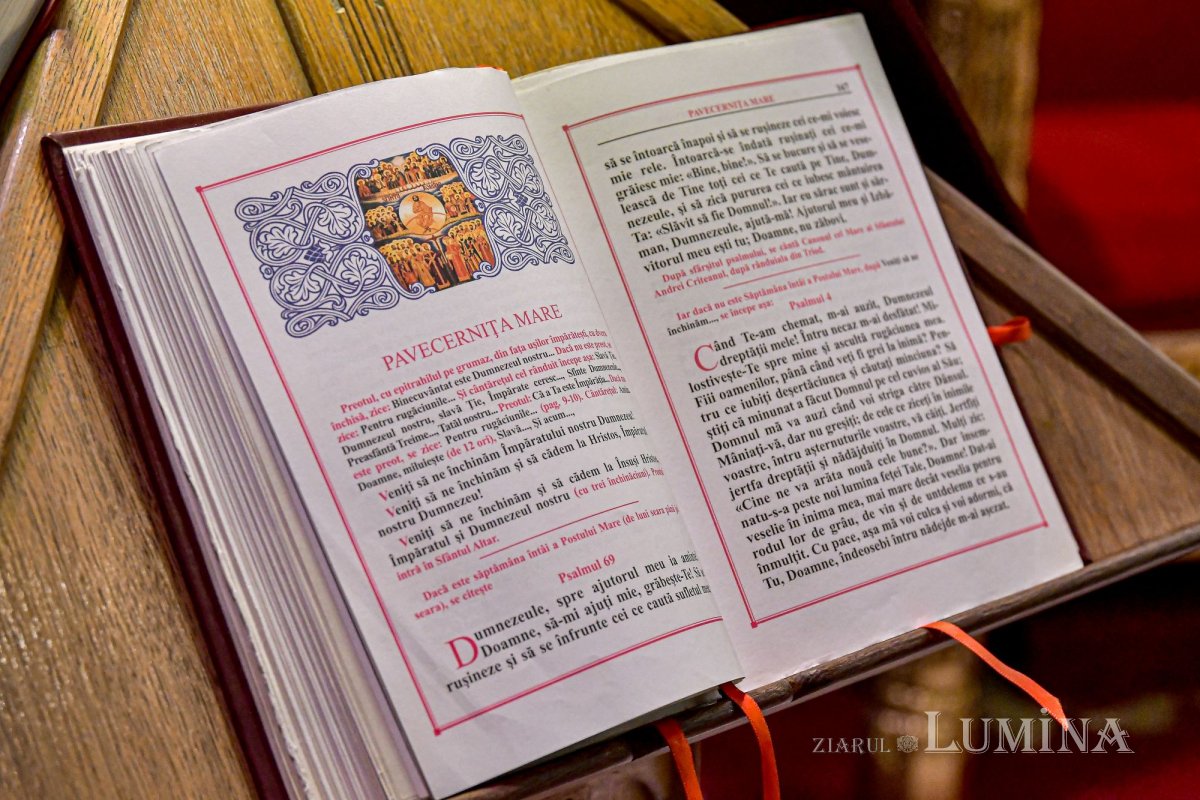 PAVECERNIȚA MARE
Preotul, cu epitrahilul pe grumaz, din fața ușilor împărătești, cu dvera
închisă, zice: Binecuvântat este Dumnezeul nostru... Dacă nu este preot, se
zice: Pentru rugăciunile... Și cântărețul cel rânduit începe așa: Slavă Ție,
Dumnezeul nostru, slavă Ție, Împărate ceresc..., Sfinte Dumnezeule,
Preasfântă Treime..., Tatăl nostru... Preotul: Că a Ta este Împărăția... Dacă nu
este preot, se zice: Pentru rugăciunile... (pag. 9-10). Cântărețul: Amin.
Doamne, miluiește (de 12 ori), Slavă..., Și acum...,
Veniți să ne închinăm Împăratului nostru Dumnezeu!
Veniți să ne închinăm și să cădem la Hristos, Împăratul
nostru Dumnezeu!
Veniți să ne închinăm și să cădem la Însuși Hristos,
Împăratul și Dumnezeul nostru (cu trei închinăciuni).
intră în Sfântul Altar.
Dacă este săptămâna întâi a Postului Mare (de luni seara până
seara), se citește
Psalmul 69
Dumnezeule, spre ajutorul meu ia aminte!
Doamne, să-mi ajuți mie, grăbește-Te! Să
rușineze și să se înfrunte cei ce caută sufletul meu
PAVECERNIȚA MARE 167
să se întoarcă înapoi și să se rușineze cei ce-mi voiesc
mie rele. Întoarcă-se îndată rușinați cei ce-mi
grăiesc mie: «Bine, bine!». Să se bucure și să se vese-
lească de Tine toți cei ce Te caută pe Tine, Dum-
nezeule, și să zică pururea cei ce iubesc mântuirea
Ta: «Slăvit să fie Domnul!». Iar eu sărac sunt și săr-
man, Dumnezeule, ajută-mă! Ajutorul meu și Izbă-
vitorul meu ești tu; Doamne, nu zăbovi.
După sfârșitul psalmului, se cântă Canonul cel Mare al Sfântului
Andrei Criteanul, după rânduiala din Triod.
Iar dacă nu este Săptămâna întâi a Postului Mare, după Veniți să ne
închinăm..., se începe așa: Psalmul 4
Când Te-am chemat, m-ai auzit, Dumnezeul
dreptății mele! Întru necaz m-ai desfătat! Mi-
lostivește-Te spre mine și ascultă rugăciunea mea.
Fiii oamenilor, până când veți fi grei la inimă? Pen-
tru ce iubiți deșertăciunea și căutați minciuna? Să
știți că minunat a făcut Domnul pe cel cuvios al Său;
Domnul mă va auzi când voi striga către Dânsul.
Mâniați-vă, dar nu greșiți; de cele ce ziceți în inimile
voastre, întru așternuturile voastre, vă căiți. Jertfiți
jertfa dreptății și nădăjduiți în Domnul. Mulți zic:
«Cine ne va arăta nouă cele bune?». Dar însem-
natu-s-a peste noi lumina feței Tale, Doamne! Dat-ai
veselie în inima mea, mai mare decât veselia pentru
rodul lor de grâu, de vin și de untdelemn ce s-au
înmulțit. Cu pace, așa mă voi culca și voi adormi, că
Tu, Doamne, îndeosebi întru nădejde m-ai așezat.
ZIARUL LUMINA